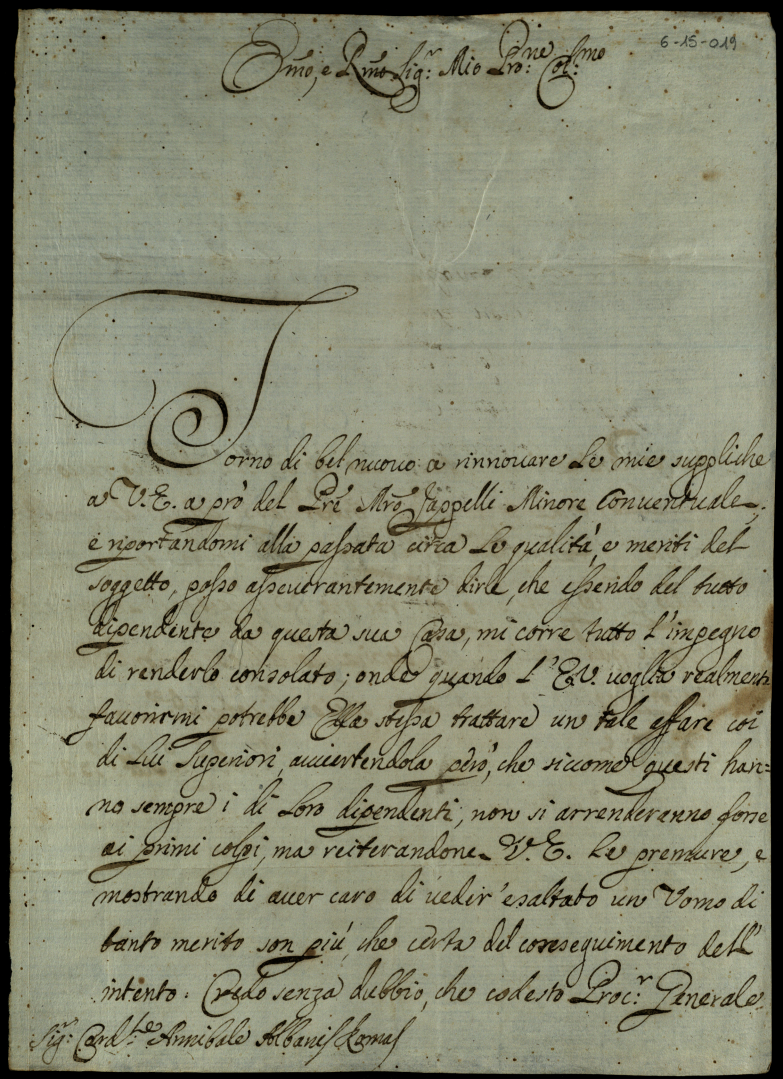 6-15-019
Em̃o, e Rm̃o Sig.r Mio Pro:ne Col:mo
Torno di bel nuovo a rinnouare le mie suppliche
a V.E. a prò del Prẽ Mrõ Jappelli Minore Conventuale,
e riportandomi alla passata circa le qualità, e meriti del
soggetto, posso asseverantemente dirle, che essendo del tutto
dipendente da questa sua Casa, mi corre tutto l'impegno
di renderlo consolato; onde quando l'E.V. voglia realmente
favorirmi potrebbe Essa stessa trattare un tale affare coi
di Lui Superiori, avvertendola però, che siccome questi han=
no sempre i di loro dipendenti, non si arrenderanno forse
ai primi colpi, ma reiterandone V.E. le premure, e
mostrando di aver caro di veder' esaltato un Vomo di
tanto merito son più, che certa del conseguimento dell'
intento. Credo senza dubbio, che codesto Proc.r Generale
Sig.r Card.le Annibale Albani Roma